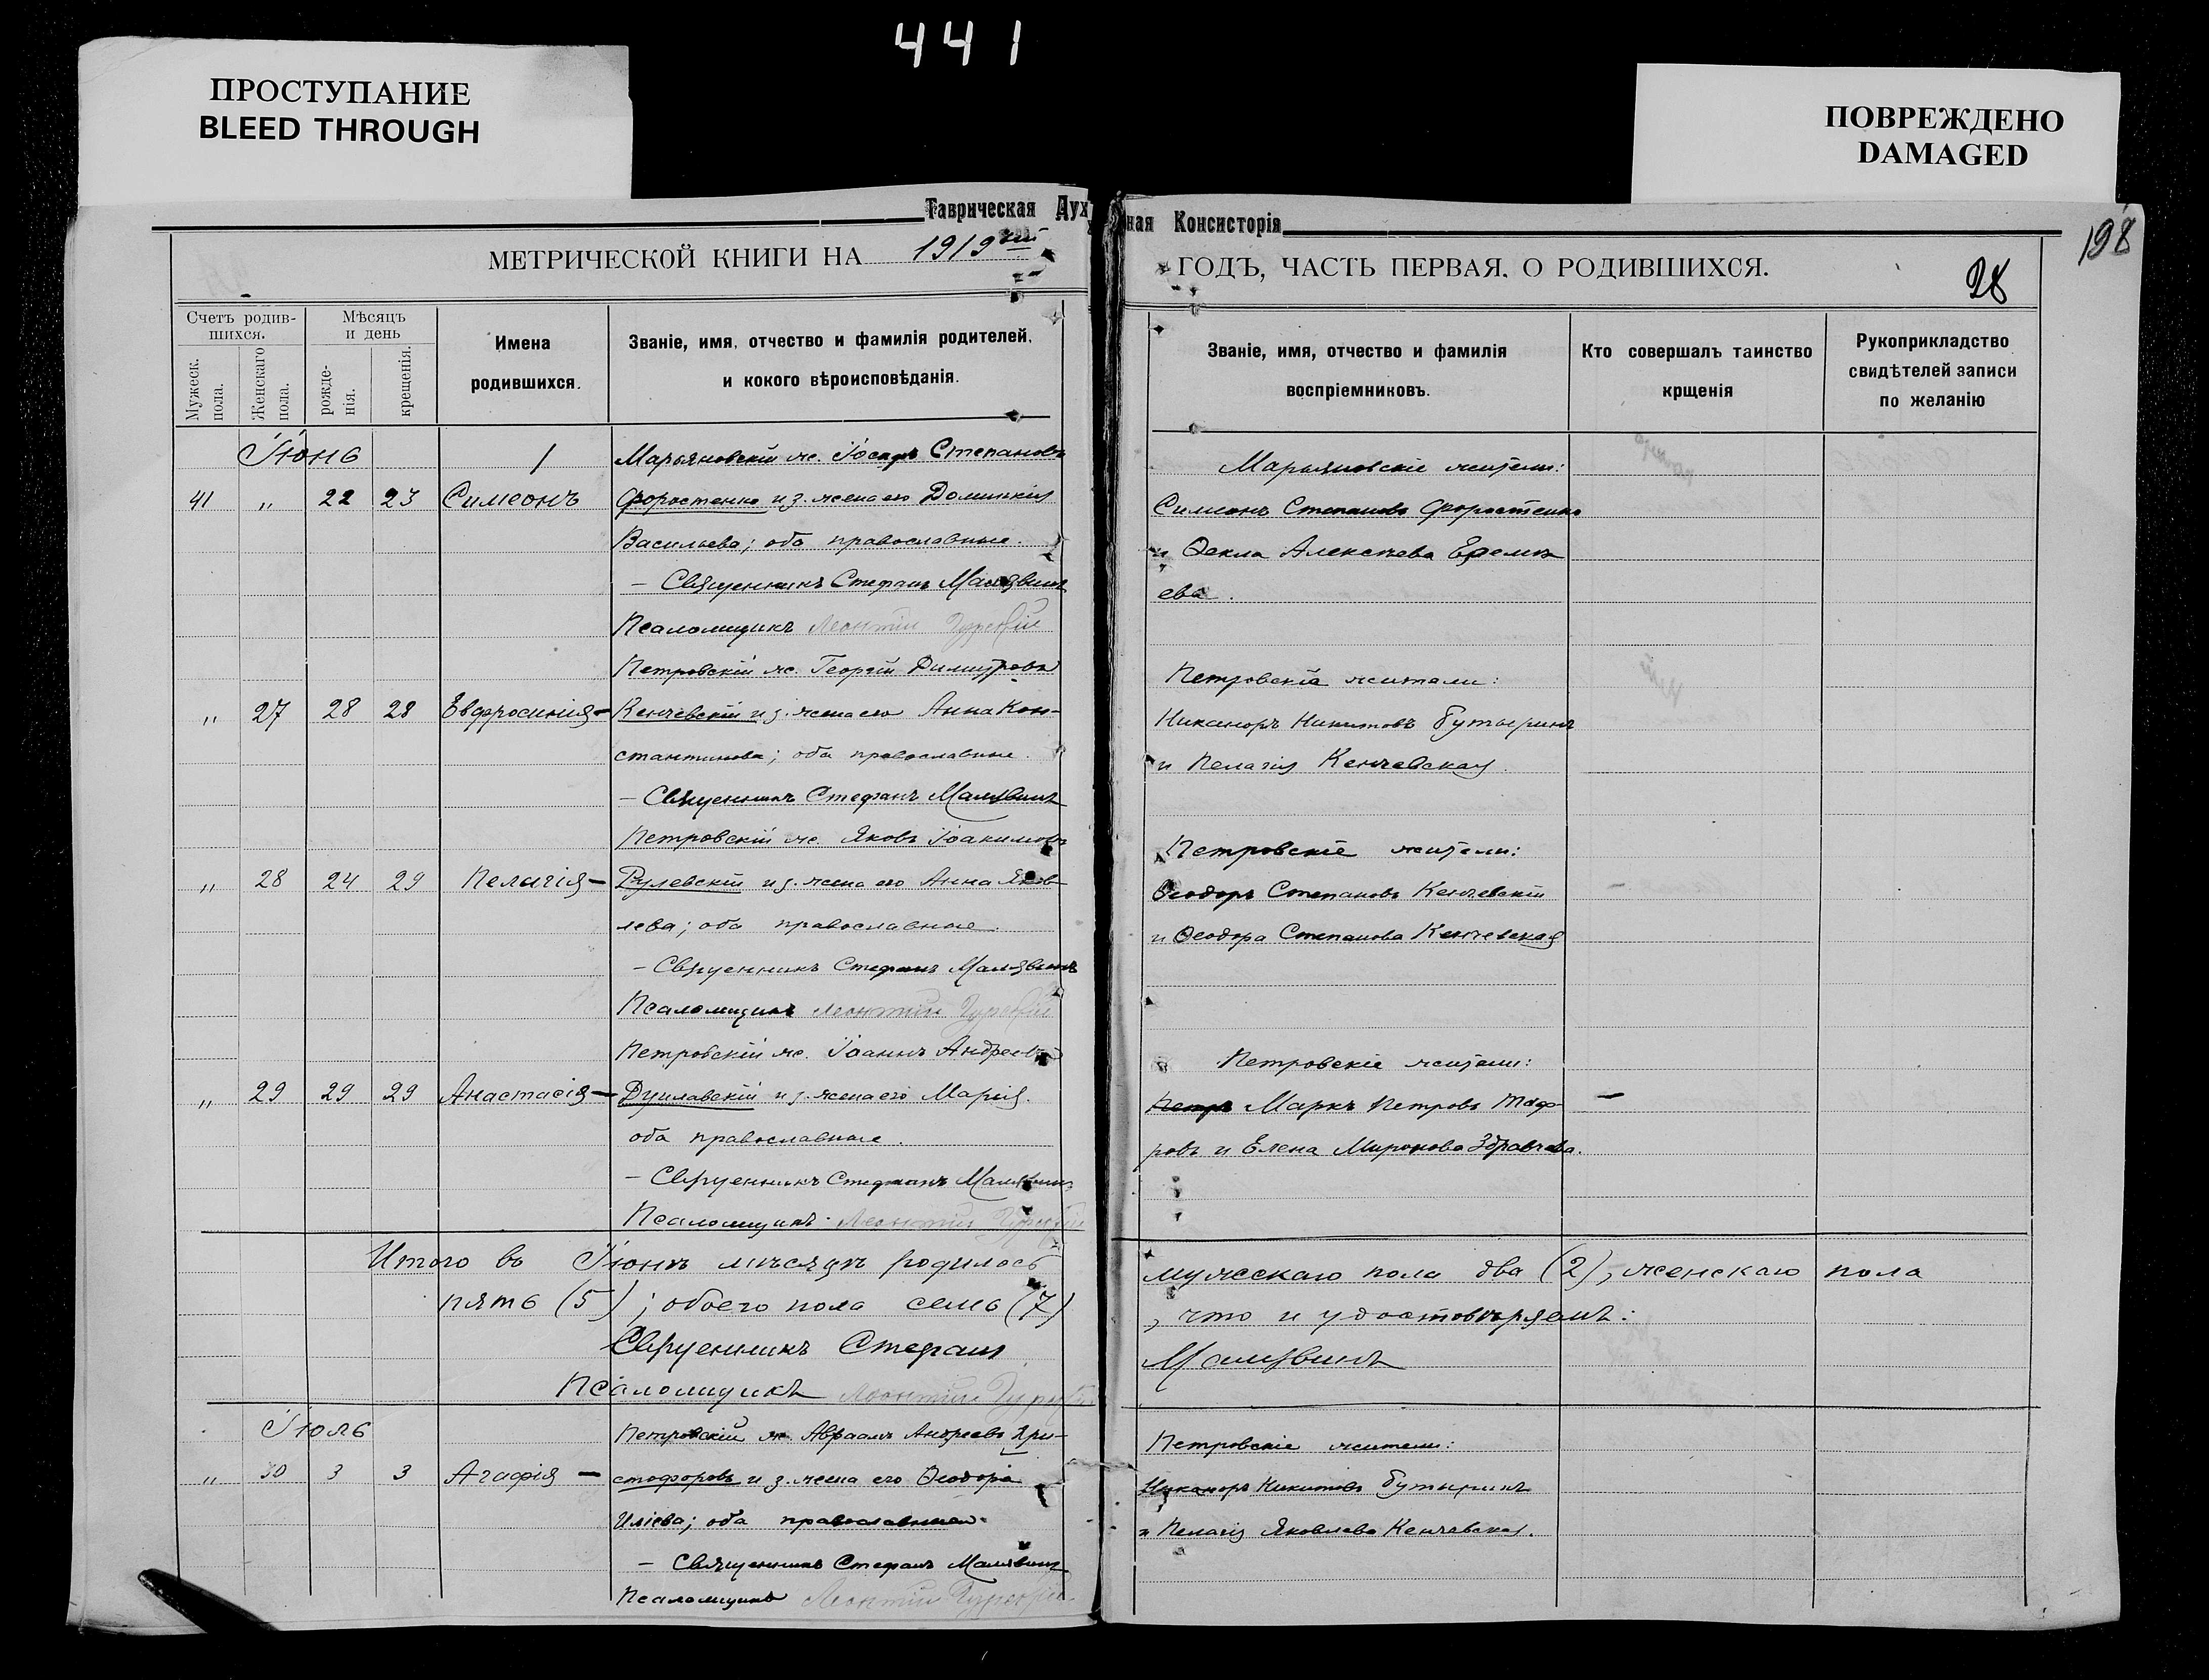 441
ПРОСТУПАНИЕ
BLEED THROUGH
ПОВРЕЖДЕНО
DAMAGED
Таврическая Дух ная Консисторія
198
МЕТРИЧЕСКОЙ КНИГИ НА 1919 ый ГОДЪ, ЧАСТЬ ПЕРВАЯ, О РОДИВШИХСЯ.
28
Счетъ родив-
шихся.
Мужеск.
пола.
Женскаго
пола.
Мѣсяцъ
и день
рожде-
нія.
крещенія.
Имена
родившихся.
Званіе, имя, отчество и фамилія родителей,
и кокого вѣроисповѣданія.
Званіе, имя, отчество и фамилія
воспріемниковъ.
Кто совершалъ таинство
крщенія
Рукоприкладство
свидѣтелей записи
по желанію
Іюнь
Марьяновскій ж. Іосифъ Степановъ
41 „ 22 23 Симеонъ Форостенко и з. жена его Домникія
Васильева; оба православные.
— Священникъ Стефанъ Малявинъ
Псаломщикъ Леонтій
Марьяновскіе жители:
Симеонъ Степановъ Форостенко
и Ѳекла Алексѣева Еремѣ
ева.
Петровскій ж. Георгій Димитровъ
„ 27 28 28 Евфросинія — Кенчевскій и з. жена его Анна Кон-
стантинова; оба православные.
— Священникъ Стефанъ Малявинъ
Петровскіе жители:
Никаноръ Никитовъ Бутыринъ
и Пелагія Кенчевская.
Петровскій ж. Яковъ Іоакимовъ
„ 28 24 29 Пелагія — Рулевскій и з. жена его Анна Яков-
лева; оба православные.
— Священникъ Стефанъ Малявинъ
Псаломщикъ Леонтій
Петровскіе жители:
Ѳеодоръ Степановъ Кенчевскій
и Ѳеодора Степанова Кенчевская
Петровскій ж. Іоаннъ Андреевъ
„ 29 29 29 Анастасія — Душлавскій и з. жена его Марія.
оба православные.
— Священникъ Стефанъ Малявинъ
Псаломщикъ Леонтій
Петровскіе жители:
Маркъ Петровъ Тодо-
ровъ и Елена Миронова Здравчева.
Итого въ Іюнѣ мѣсяцѣ родилось мужескаго пола два (2), женскаго пола
пять (5); обоего пола семь (7), что и удостовѣряемъ:
Священникъ Стефанъ Малявинъ
Псаломщикъ Леонтій
Іюль
Петровскій ж. Авраамъ Андреевъ Хри-
„ 30 3 3 Агафія — стофоровъ и з. жена его Ѳеодора
Иліева; оба православные.
— Священникъ Стефанъ Малявинъ
Псаломщикъ Леонтій
Петровскіе жители:
Никаноръ Никитовъ Бутыринъ
и Пелагія Яковлева Кенчевская.